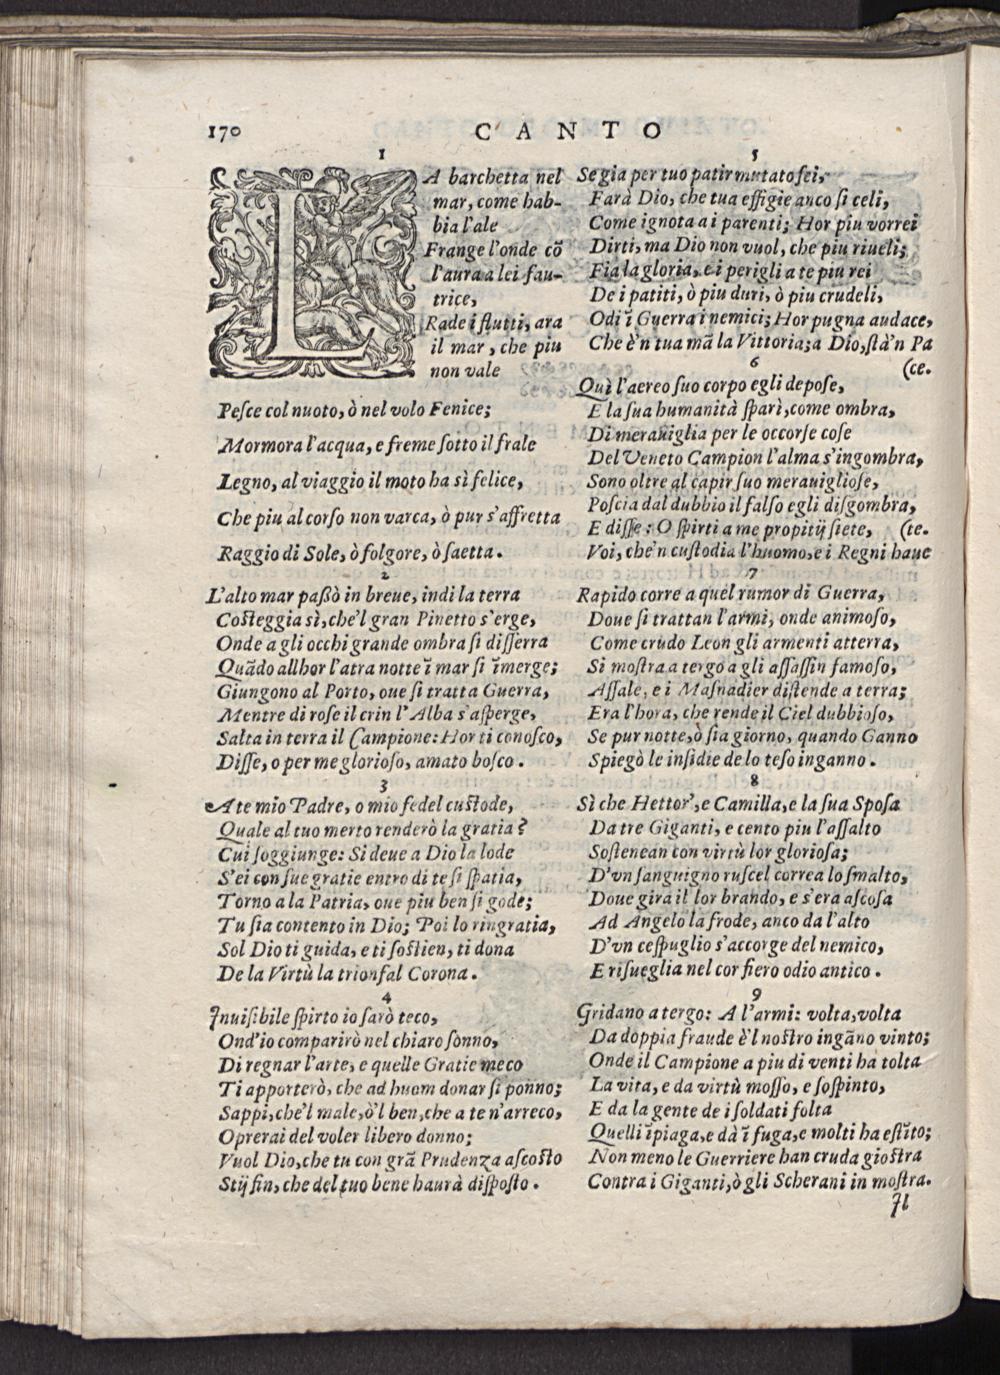 170
CANTO
1
LA barchetta nel
mar, come hab-
bia l'ale
Frange l'onde cō
l'aura a lei fau-
trice,
Rade i flutti, ara
il mar, che piu
non vale
Pesce col nuoto, ò nel volo Fenice;
Mormora l'acqua, e freme sotto il frale
Legno, al viaggio il moto ha sì felice,
Che piu al corso non varca, ò pur s'affretta
Raggio di Sole, ò folgore, ò saetta.
2
L'alto mar paßò in breue, indi la terra
Costeggia sì, che'l gran Pinetto s'erge,
Onde a gli occhi grande ombra si disserra
Quādo allhor l'atra notte ī mar si īmerge;
Giungono al Porto, oue si tratta Guerra,
Mentre di rose il crin l'Alba s'asperge,
Salta in terra il Campione: Hor ti conosco,
Disse, o per me glorioso, amato bosco.
3
A te mio Padre, o mio fedel custode,
Quale al tuo merto renderò la gratia?
Cui soggiunge: Si deue a Dio la lode
S'ei con sue gratie entro di te si spatia,
Torno a la Patria, oue piu ben si gode;
Tu sia contento in Dio; Poi lo ringratia,
Sol Dio ti guida, e ti sostien, ti dona
De la Virtù la trionfal Corona.
4
Inuisibile spirto io sarò teco,
Ond'io comparirò nel chiaro sonno,
Di regnar l'arte, e quelle Gratie meco
Ti apporterò, che ad huom donar si ponno;
Sappi, che'l male, ò'l ben, che a te n'arreco,
Oprerai del voler libero donno;
Vuol Dio, che tu con grā Prudenza ascosto
Stij fin, che del tuo bene haurà disposto.
5
Se gia per tuo patir mutato sei,
Farà Dio, che tua effigie anco si celi,
Come ignota a i parenti; Hor piu vorrei
Dirti, ma Dio non vuol, che piu riueli;
Fia la gloria, e i perigli a te piu rei
De i patiti, ò piu duri, ò piu crudeli,
Odi ī Guerra i nemici; Hor pugna audace,
Che è'n tua mā la Vittoria; a Dio, stà'n Pa
(ce.
6
Quì l'aereo suo corpo egli depose,
E la sua humanità sparì, come ombra,
Di merauiglia per le occorse cose
Del Veneto Campion l'alma s'ingombra,
Sono oltre al capir suo merauigliose,
Poscia dal dubbio il falso egli disgombra,
E disse: O spirti a me propitij siete, (te.
Voi, che'n custodia l'huomo, e i Regni haue
7
Rapido corre a quel rumor di Guerra,
Doue si trattan l'armi, onde animoso,
Come crudo Leon gli armenti atterra,
Si mostra a tergo a gli assassin famoso,
Assale, e i Masnadier distende a terra;
Era l'hora, che rende il Ciel dubbioso,
Se pur notte, ò sia giorno, quando Ganno
Spiegò le insidie de lo teso inganno.
8
Sì che Hettor', e Camilla, e la sua Sposa
Da tre Giganti, e cento piu l'assalto
Sostenean con virtù lor gloriosa;
D'vn sanguigno ruscel correa lo smalto,
Doue gira il lor brando, e s'era ascosa
Ad Angelo la frode, anco da l'alto
D'vn cespuglio s'accorge del nemico,
E risueglia nel cor fiero odio antico.
9
Gridano a tergo: A l'armi: volta, volta
Da doppia fraude è'l nostro ingāno vinto;
Onde il Campione a piu di venti ha tolta
La vita, e da virtù mosso, e sospinto,
E da la gente de i soldati folta
Quelli īpiaga, e dà ī fuga, e molti ha estīto;
Non meno le Guerriere han cruda giostra
Contra i Giganti, ò gli Scherani in mostra.
Il